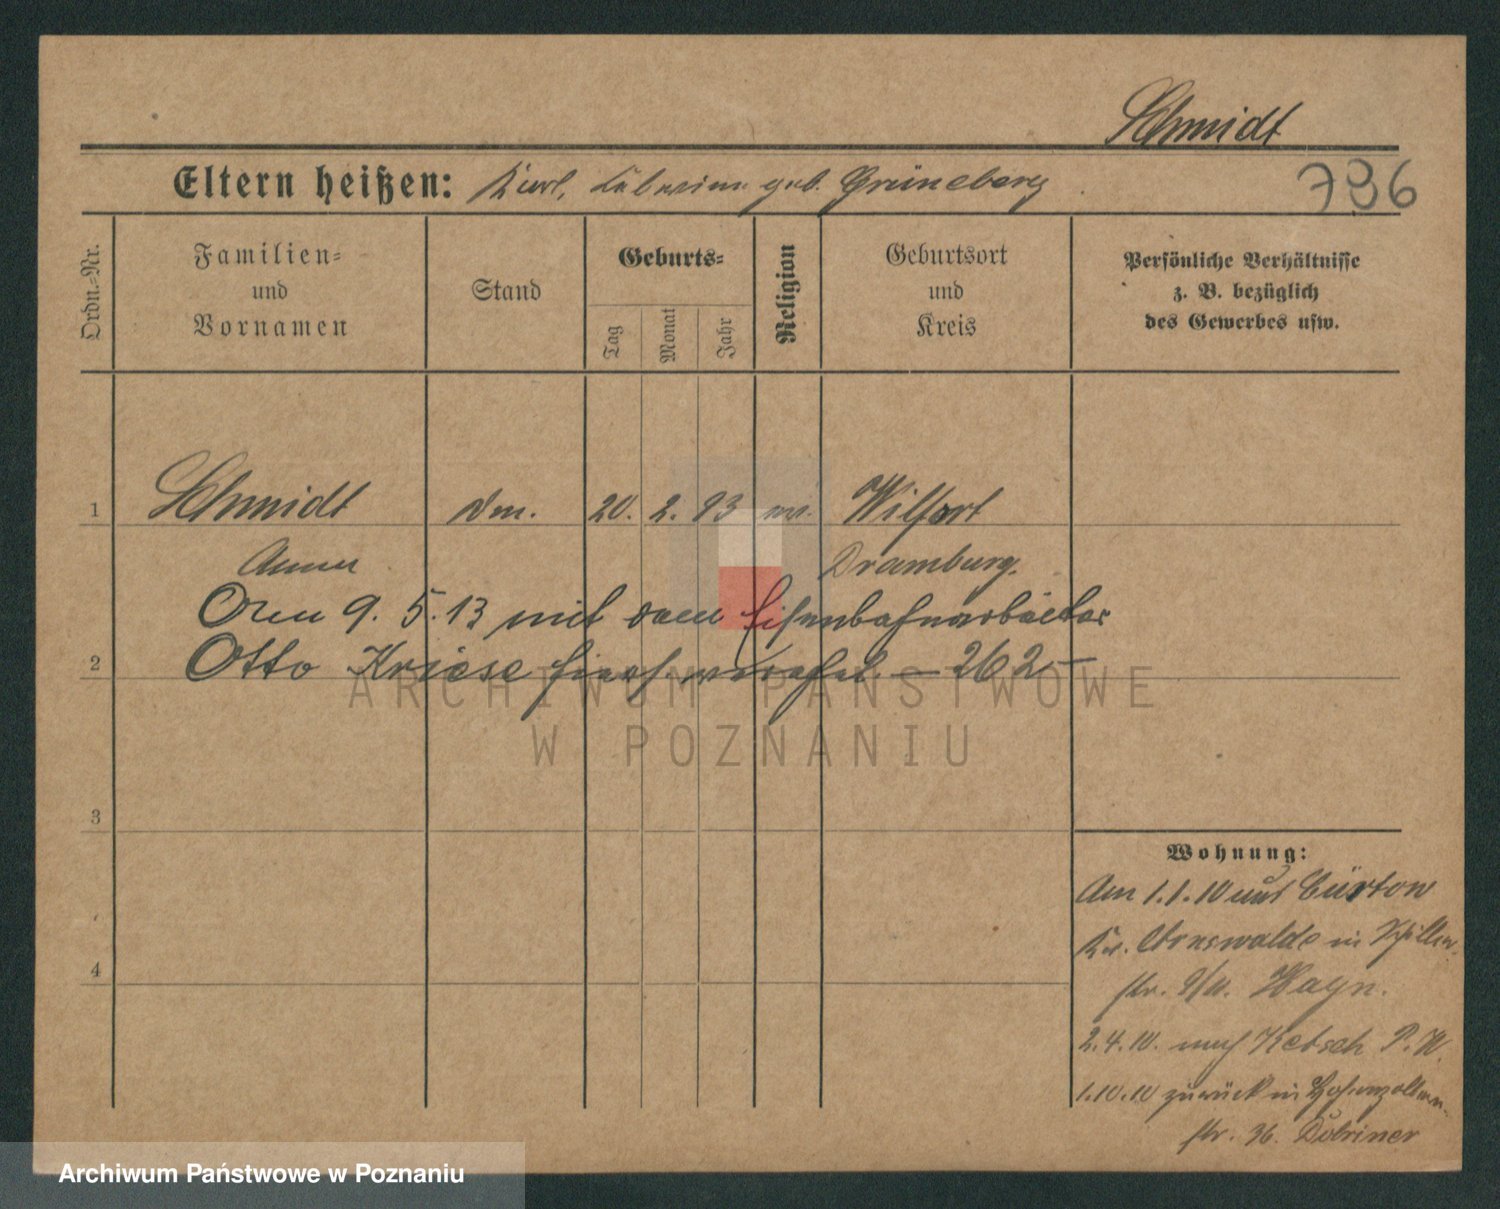 Schmidt
Eltern heißen: Karl, geb. Grüneberg
786
Ordn.-Nr.
Familien-
und
Vornamen
Stand
Geburts-
Tag
Monat
Jahr
Religion
Geburtsort
und
Kreis
Persönliche Verhältnisse
z. B. bezüglich
des Gewerbes usw.
1 Schmidt 20. 2. 93 Wilfort
Anna Dramburg.
9. 5. 13 mit dem Eisenbahnarbeiter
2 Otto Kriese hier verehel. — 262 —
ARCHIWUM PAŃSTWOWE
W POZNANIU
3
4
Wohnung:
Am 1.1.10 aus Cürtow
Kr. Arnswalde in Schiller-
str. Hayn.
2.4.10. nach Ketsch P. W.
1.10.10 zurück in Hohenzollern-
str. 36. Döbriner
Archiwum Państwowe w Poznaniu